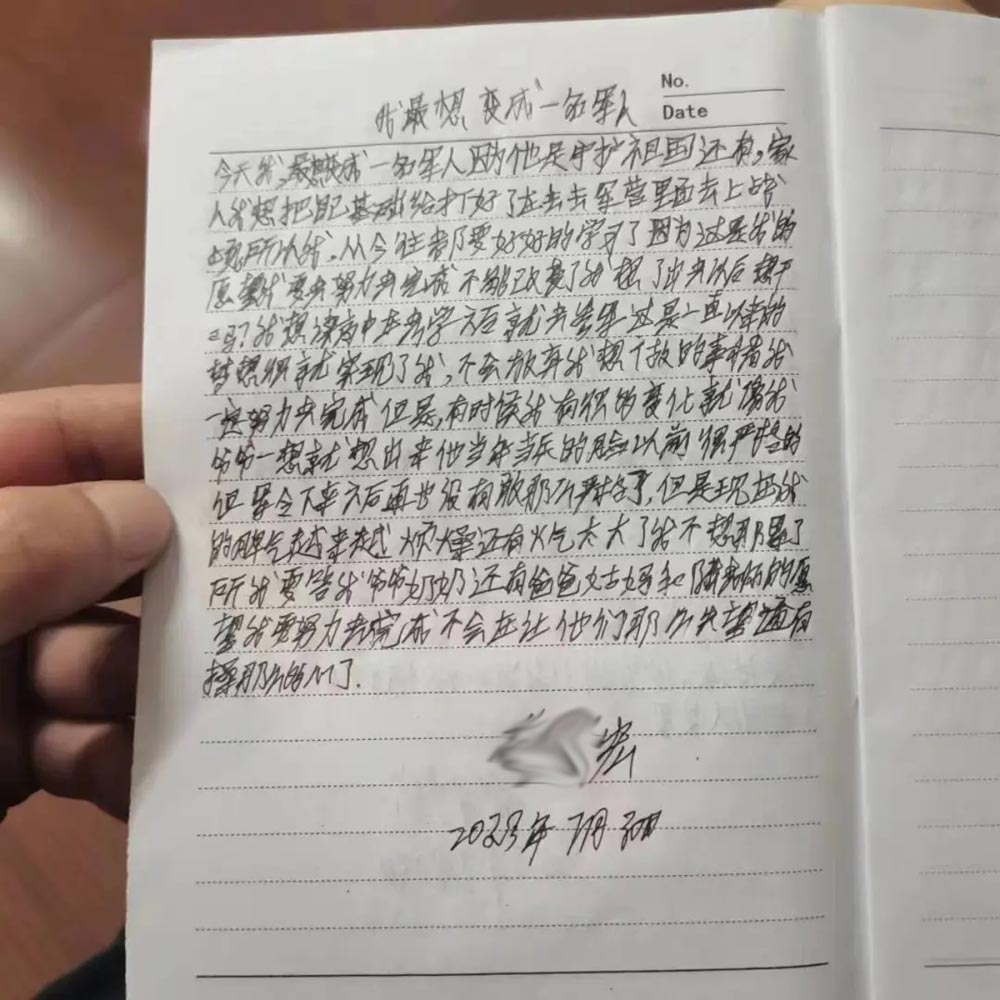 No.
Date
我最想变成一名军人
今天我,最想变成一名军人因为他是守护祖国还有,家
人我想把自己基础给打好了在去去军营里面去上战
场所以我.从今往后都要好好的学习了因为这是我的
愿望我要去努力去完成不能改变了我想了出去以后想干
吗?我想读高中在去学六后就去当军这是一直以来的
梦想组就实现了我,不会放弃我想干故的事情我
一定努力去完成但是,有时候我有组的变化就像我
爷爷一想就想出来他当年当兵的脸以前很严格的
但是令下来六后再也没有歌那么严格了,但是现在我
的脾气越来越烦燥还有火气太大了我不想那里了
所我要答我爷爷奶奶还有爸爸姑妈和的愿
望我要努力去完成不会在让他们那么失望
那么了.
宏
2023年7月30日